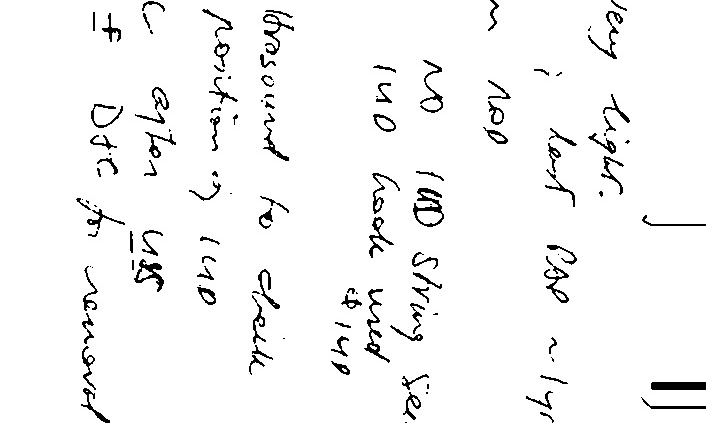 very light.
; last PAP ~ 1 yr
NAD
NO IUD string see
IUD hook used
IUD
trasound to check
position IUD
C after USS
D+C for removal